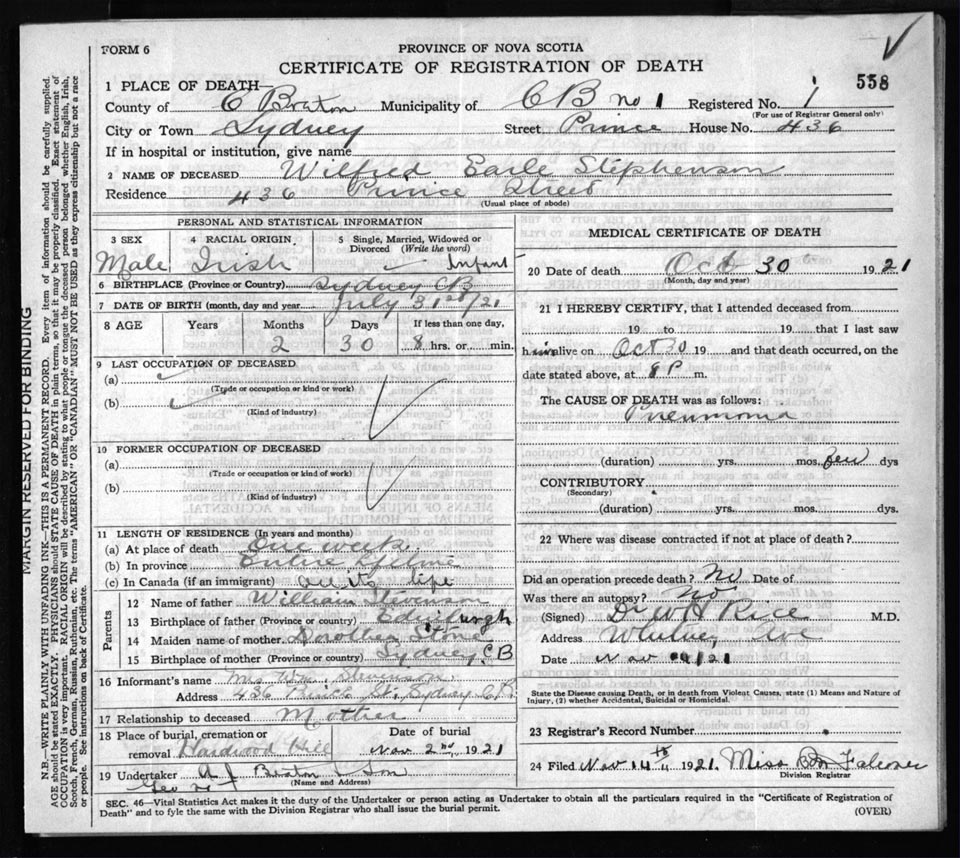 FORM 6
PROVINCE OF NOVA SCOTIA
CERTIFICATE OF REGISTRATION OF DEATH
558
1 PLACE OF DEATH—
County of C Braton Municipality of CB no 1 Registered No. 1
(For use of Registrar General only)
City or Town Sydney Street Prince House No. 436
If in hospital or institution, give name
2 NAME OF DECEASED Wilfred Earle Stephenson
Residence 436 Prince Street
(Usual place of abode)
PERSONAL AND STATISTICAL INFORMATION
3 SEX Male
4 RACIAL ORIGIN Irish
5 Single, Married, Widowed or Divorced (Write the word) Infant
6 BIRTHPLACE (Province or Country) Sydney CB
7 DATE OF BIRTH (month, day and year) July 31st/21
8 AGE Years Months Days If less than one day,
2 30 8 hrs. or min.
9 LAST OCCUPATION OF DECEASED
(a)
(Trade or occupation or kind or work)
(b)
(Kind of industry)
10 FORMER OCCUPATION OF DECEASED
(a)
(Trade or occupation or kind of work)
(b)
(Kind of industry)
11 LENGTH OF RESIDENCE (In years and months)
(a) At place of death One week
(b) In province Entire lifetime
(c) In Canada (if an immigrant) all its life
Parents
12 Name of father William Stevenson
13 Birthplace of father (Province or country) Edinburgh
14 Maiden name of mother Dorothea Stone
15 Birthplace of mother (Province or country) Sydney CB
16 Informant's name Mrs Wm. Stevenson
Address 436 Prince St, Sydney C.B.
17 Relationship to deceased Mother
18 Place of burial, cremation or removal Hardwood Hill
Date of burial Nov 2nd, 1921
19 Undertaker A J Beaton & Son
(Name and Address)
MEDICAL CERTIFICATE OF DEATH
20 Date of death Oct 30 1921
(Month, day and year)
21 I HEREBY CERTIFY, that I attended deceased from
19 to 19 that I last saw
him alive on Oct 30 19 and that death occurred, on the
date stated above, at 8 P m.
The CAUSE OF DEATH was as follows:
Pneumonia
(duration) yrs. mos. few dys
CONTRIBUTORY
(Secondary)
(duration) yrs. mos. dys.
22 Where was disease contracted if not at place of death?
Did an operation precede death? No Date of
Was there an autopsy? No
(Signed) Dr W H Rice M.D.
Address Whitney Ave
Date Nov /21
State the Disease causing Death, or in death from Violent Causes, state (1) Means and Nature of
Injury, (2) whether Accidental, Suicidal or Homicidal.
23 Registrar's Record Number
24 Filed Nov 14th 1921 Miss Falconer
Division Registrar
SEC. 46—Vital Statistics Act makes it the duty of the Undertaker or person acting as Undertaker to obtain all the particulars required in the "Certificate of Registration of
Death" and to fyle the same with the Division Registrar who shall issue the burial permit.
(OVER)
MARGIN RESERVED FOR BINDING
N.B.—WRITE PLAINLY WITH UNFADING INK—THIS IS A PERMANENT RECORD. Every item of information should be carefully supplied.
AGE should be stated EXACTLY. PHYSICIANS should STATE CAUSE OF DEATH in plain terms, so that it may be properly classified. Exact statement of
OCCUPATION is very important. RACIAL ORIGIN will be described by stating to what people or tongue the deceased person belonged whether English, Irish,
Scotch, French, German, Russian, Ruthenian, etc. The terms "AMERICAN" or "CANADIAN" MUST NOT BE USED as they express citizenship but not a race
or people. See instructions on back of Certificate.